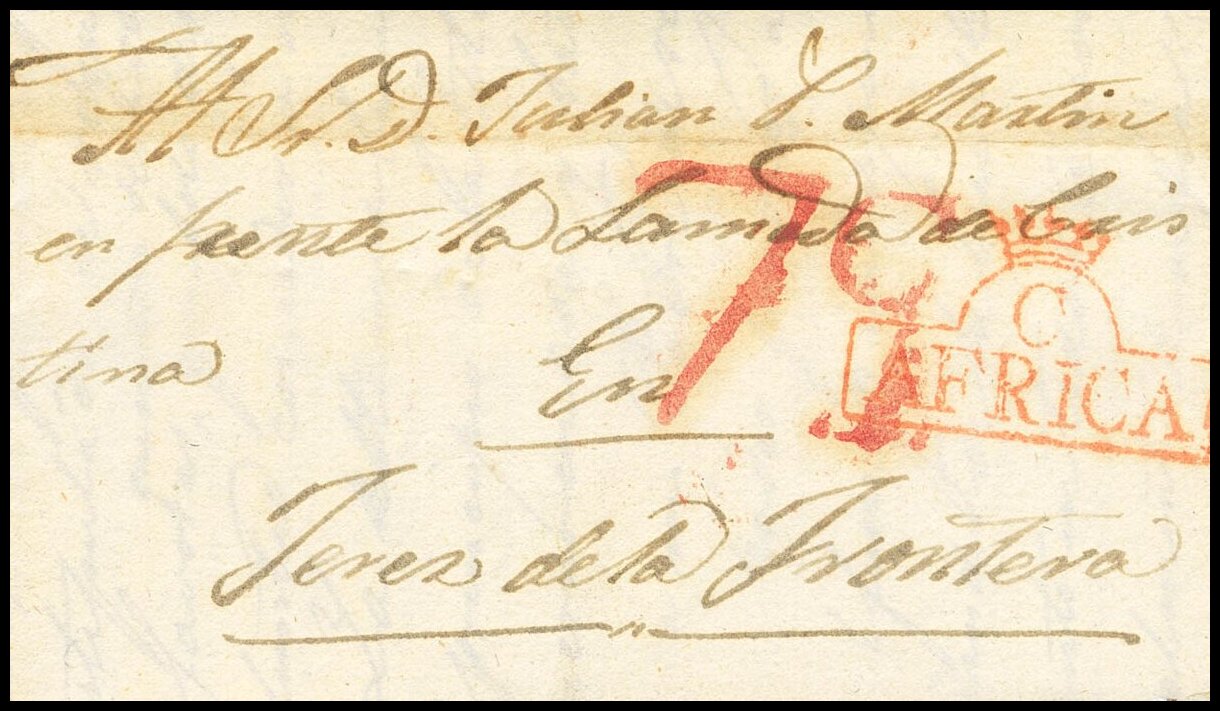 Al Sr. D. Julian S. Martin
en frente la Lameda de Cris
tina
En
Jerez de la Frontera
C
AFRICA